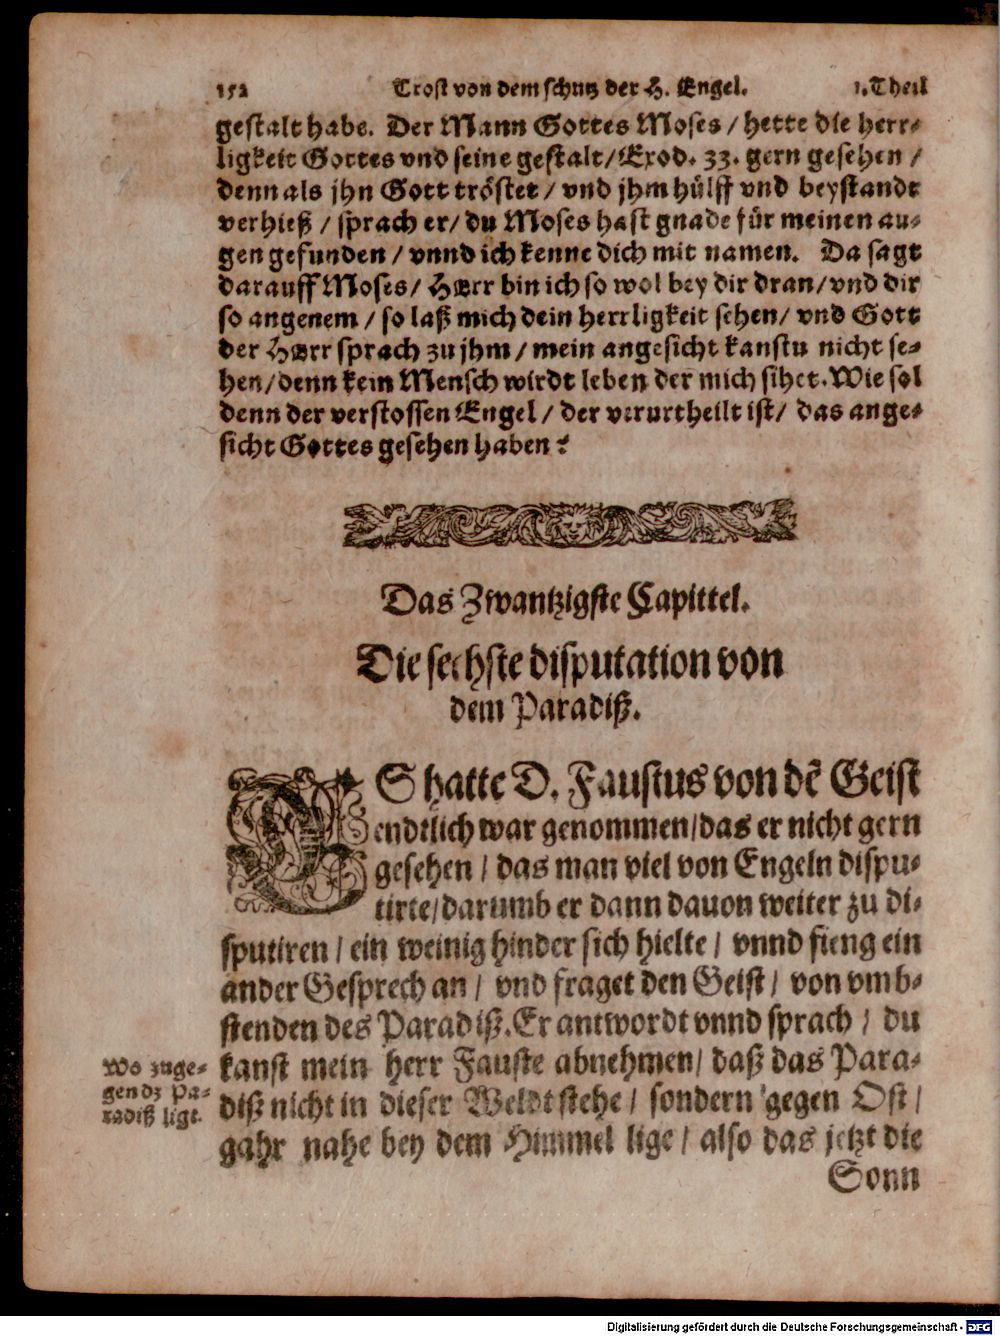 152 Trost von dem schutz der H. Engel. 1. Theil
gestalt habe. Der Mann Gottes Moses / hette die herr-
ligkeit Gottes vnd seine gestalt / Exod. 33. gern gesehen /
denn als jhn Gott tröstet / vnd jhm hülff vnd beystandt
verhieß / sprach er / du Moses hast gnade für meinen au-
gen gefunden / vnnd ich kenne dich mit namen. Da sagt
darauff Moses / HErr bin ich so wol bey dir dran / vnd dir
so angenem / so laß mich dein herrligkeit sehen / vnd Gott
der HErr sprach zu jhm / mein angesicht kanstu nicht se-
hen / denn kein Mensch wirdt leben der mich sihet. Wie sol
denn der verstossen Engel / der verurtheilt ist / das ange-
sicht Gottes gesehen haben?
Das Zwantzigste Capittel.
Die sechste disputation von
dem Paradiß.
ES hatte D. Faustus von dē Geist
endtlich war genommen / das er nicht gern
gesehen / das man viel von Engeln dispu-
tirte / darumb er dann dauon weiter zu di-
sputiren / ein weinig hinder sich hielte / vnnd fieng ein
ander Gesprech an / vnd fraget den Geist / von vmb-
stenden des Paradiß. Er antwordt vnnd sprach / du
kanst mein herr Fauste abnehmen / daß das Para-
diß nicht in dieser Weldt stehe / sondern gegen Ost /
gahr nahe bey dem Himmel lige / also das jetzt die
Sonn
Wo zuge-
gen dz Pa-
radiß ligt.
Digitalisierung gefördert durch die Deutsche Forschungsgemeinschaft - DFG